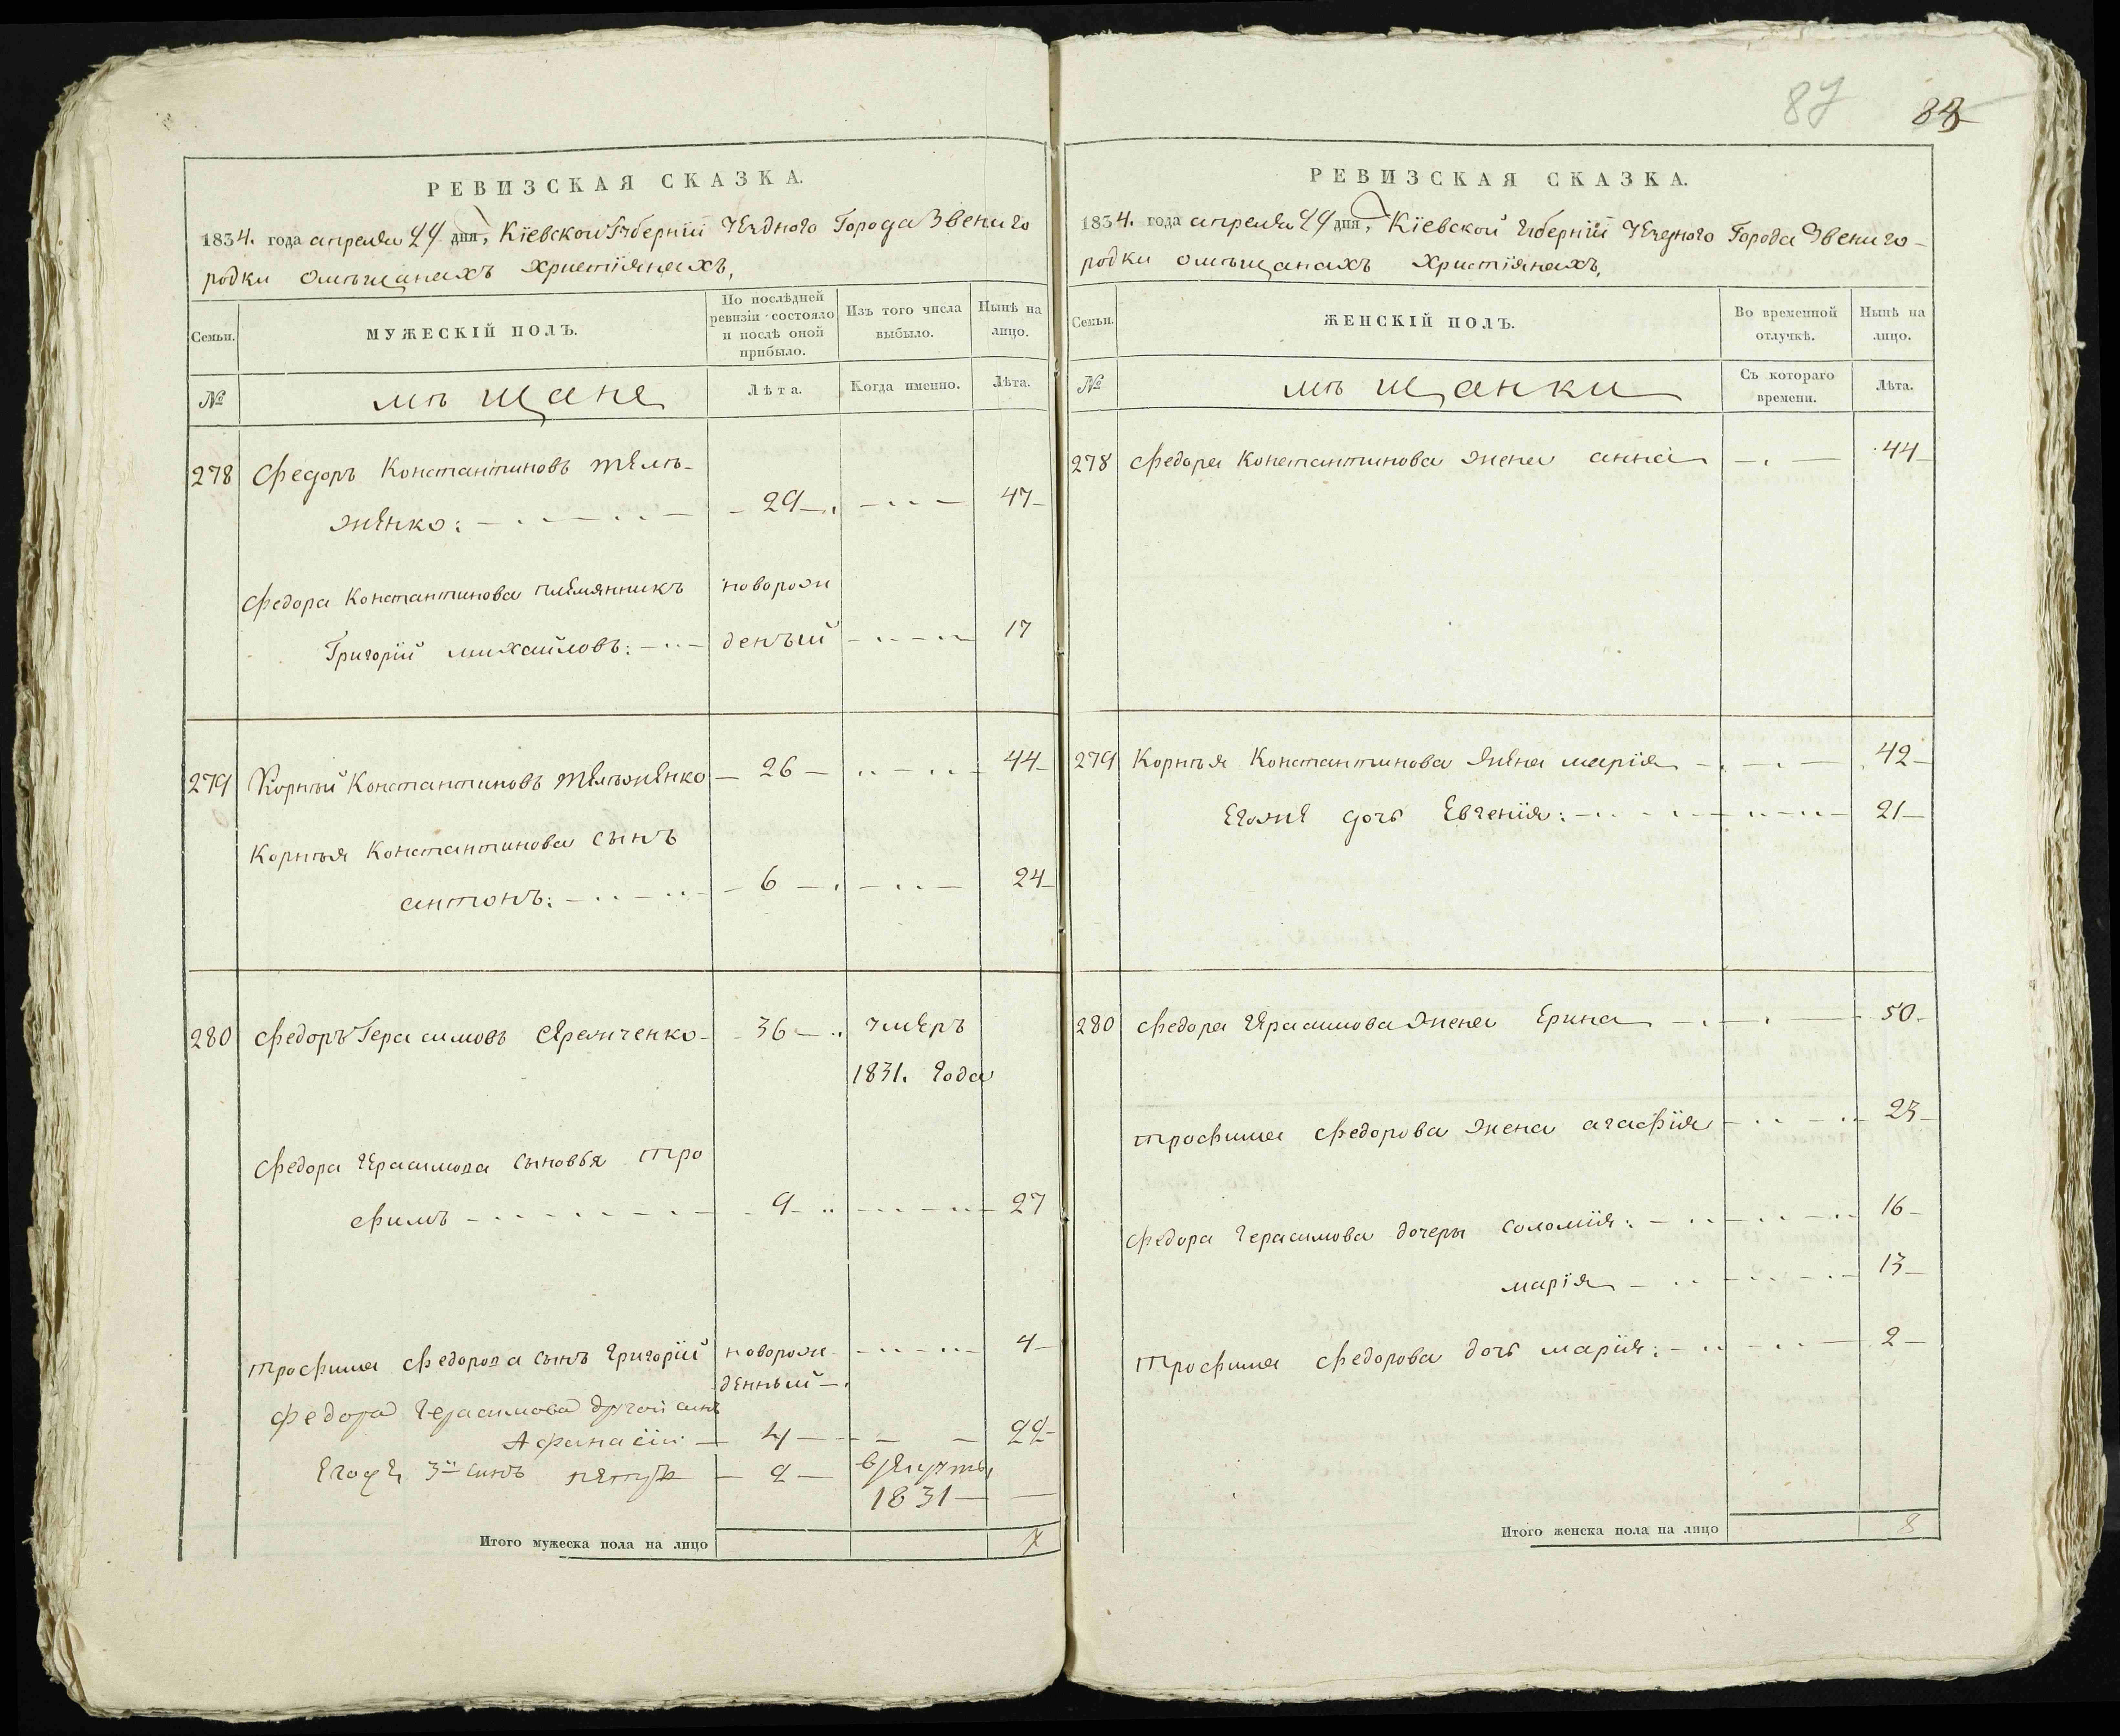 87 88
РЕВИЗСКАЯ СКАЗКА.
1834. года апреля 24 дня, Кіевской Губерніи Уезднаго Города Звениго
родки омѣщанахъ христіянахъ,
Семьи.
МУЖЕСКІЙ ПОЛЪ.
По послѣдней ревизіи состояло и послѣ оной прибыло.
Изъ того числа выбыло.
Нынѣ на лицо.
№
мѣщане
Лѣта.
Когда именно.
Лѣта.
278 Федоръ Константиновъ
женко: 29 47
Федора Константинова племянникъ новорож
Григорій михайловъ: денъый 17
279 Корнѣй Константиновъ 26 44
Корнѣя Константинова сынъ
антонъ: 6 24
280 Федоръ Герасимовъ 36 умеръ
1831. года
Федора Герасимова сыновья тро
фимъ 9 27
трофима Федорова сынъ григорій новорож 4
денный
Федора Герасимова другой сынъ
Афанасій 4 22
Егоже 3й сынъ петръ 2 врекруты
1831
Итого мужеска пола на лицо 7
РЕВИЗСКАЯ СКАЗКА.
1834. года апреля 24 дня, Кіевской губерніи Уезднаго Города Звениго-
родки омѣщанахъ христіянахъ,
Семьи.
ЖЕНСКІЙ ПОЛЪ.
Во временной отлучкѣ.
Нынѣ на лицо.
№
мѣщанки
Съ котораго времени.
Лѣта.
278 Федора Константинова жена анна 44
279 Корнѣя Константинова жена марія 42
Егоже дочь Евгенія: 21
280 Федора Герасимова жена Ерина 50
трофима Федорова жена агафія 23
Федора герасимова дочеры соломія: 16
марія 13
трофима Федорова дочь марія: 2
Итого женска пола на лицо 8